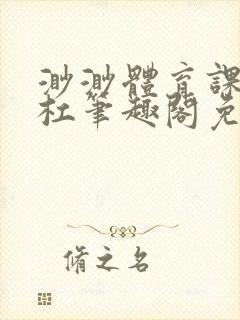 渺渺體育課
杜筆趣閣免
脩之名